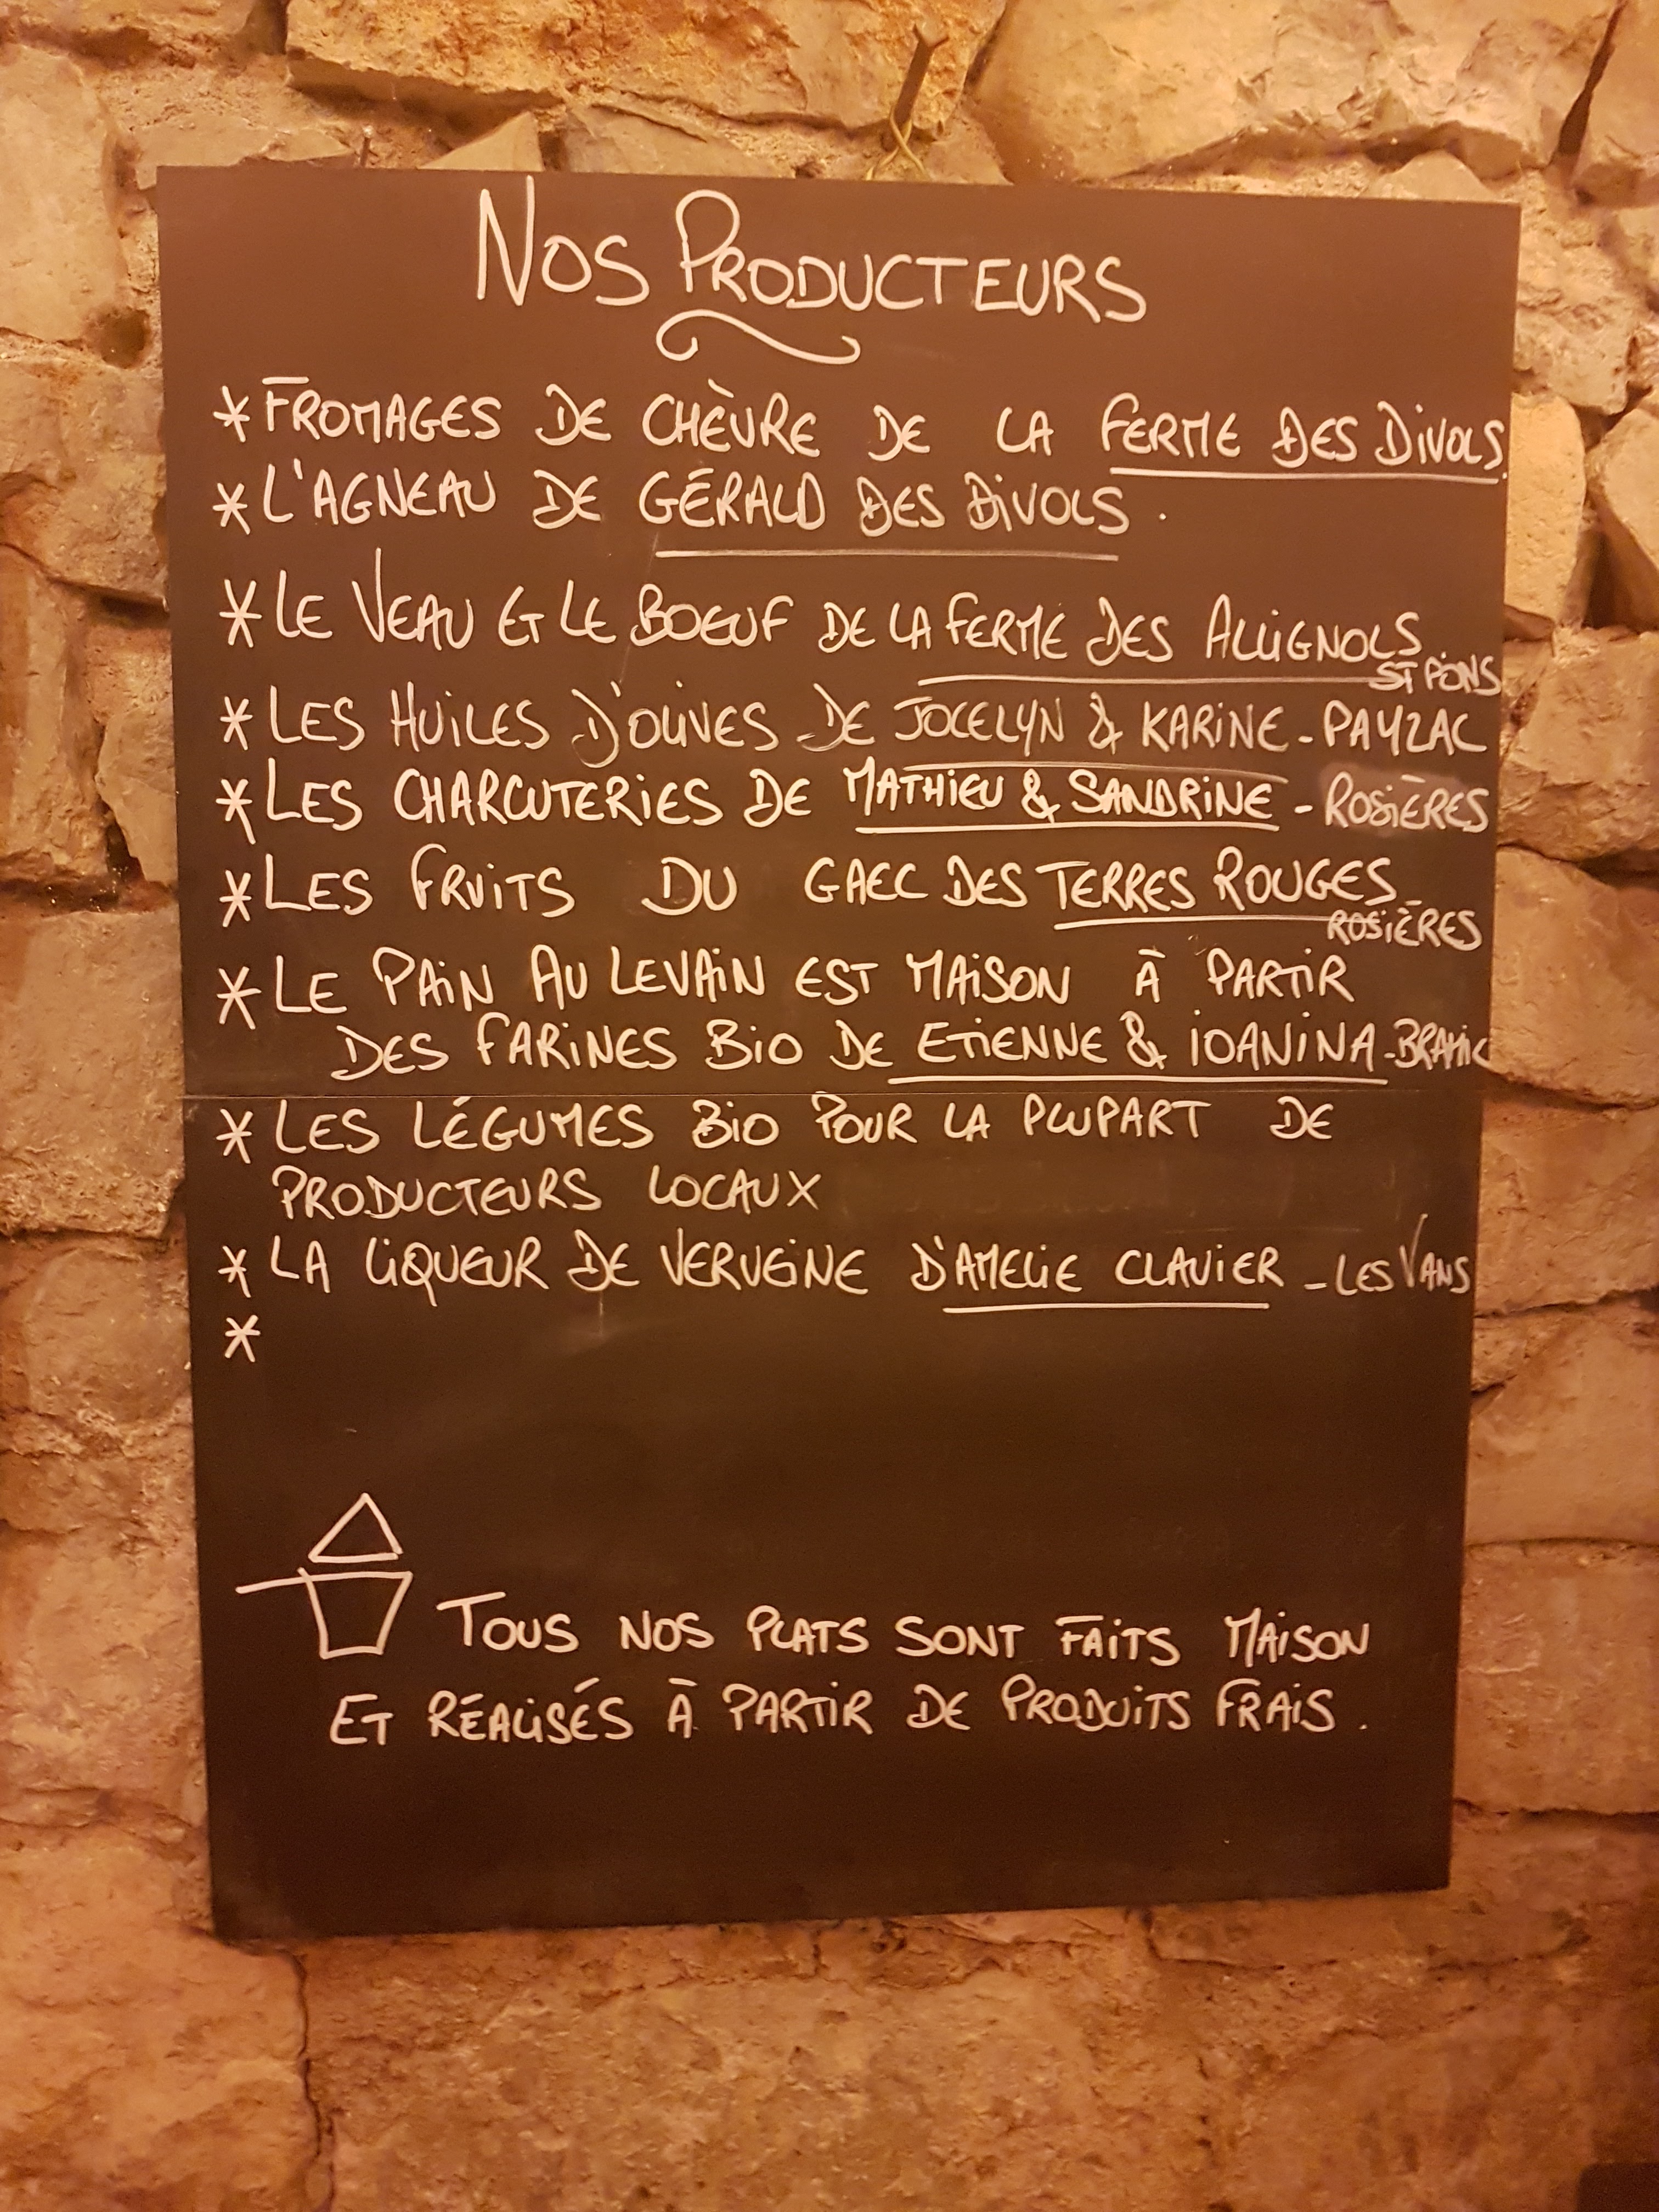 NOS PRODUCTEURS
* FROMAGES DE CHÈVRE DE LA FERME DES DIVOLS.
* L'AGNEAU DE GÉRALD DES DIVOLS.
* LE VEAU ET LE BOEUF DE LA FERME DES ALLIGNOLS
ST PONS
* LES HUILES D'OLIVES DE JOCELYN & KARINE - PAYZAC
* LES CHARCUTERIES DE MATHIEU & SANDRINE - ROSIÈRES
* LES FRUITS DU GAEC DES TERRES ROUGES -
ROSIÈRES
* LE PAIN AU LEVAIN EST MAISON À PARTIR
DES FARINES BIO DE ETIENNE & IOANINA - BRAHIC
* LES LÉGUMES BIO POUR LA PLUPART DE
PRODUCTEURS LOCAUX
* LA LIQUEUR DE VERVEINE D'AMELIE CLAVIER - LES VANS
*
TOUS NOS PLATS SONT FAITS MAISON
ET RÉALISÉS À PARTIR DE PRODUITS FRAIS.